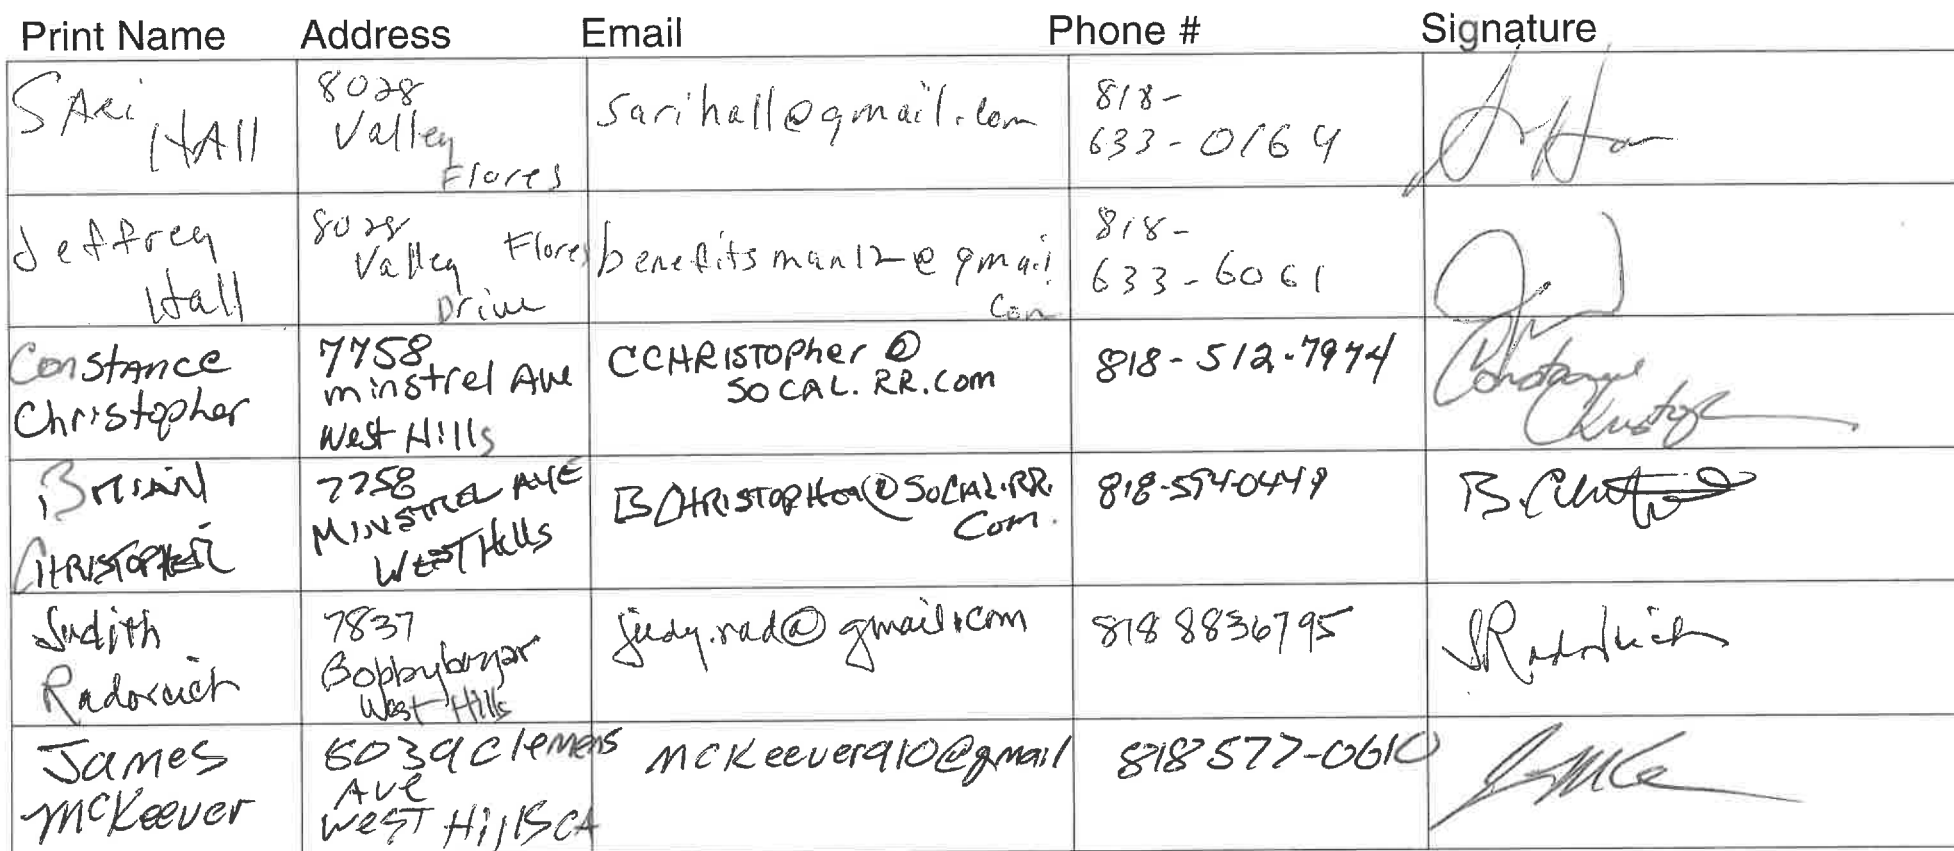 Print Name Address Email Phone # Signature
SARi
HAll
8028
Valley
Flores
sarihall@gmail.com
818-
633-0164
Jeffrey
Hall
8028
Valley Flores
Drive
benefitsman12@gmail
com
818-
633-6061
Constance
Christopher
7758
minstrel Ave
West Hills
CCHRISTOPher @
SOCAL.RR.com
818-512-7974
Constance
Christoph
BRIAN
CHRISTOPHER
7758
MINSTREL AVE
WEST Hills
BCHRISTOPHER@SOCAL.RR.
Com.
818-594-0449
B.
Judith
Radovich
7837
Bobbyboyar
West Hills
judy.rad@gmail.com
818 8836795
JRadovich
James
McKeever
Clemens
Ave
West Hills CA
McKeever910@gmail
818 577-0610